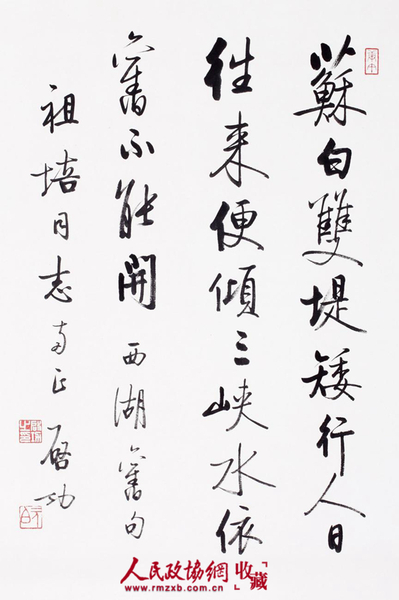 蘇白雙堤矮行人日
往来便傾三峽水依
舊不能開 西湖舊句
祖培同志 正 啓功
人民政協網「收藏」
www.rmzxb.com.cn